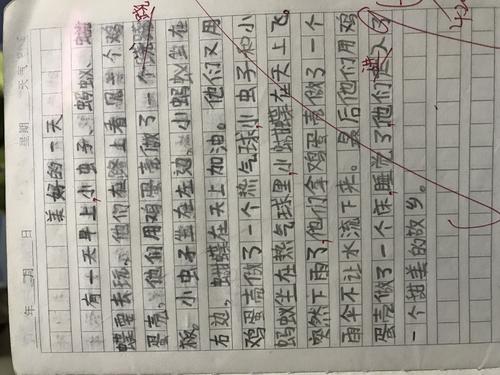 年 月 日 星期 天气
美好的一天
有一天早上,小虫子、蚂蚁、蝴
蝶要去玩。他们在路上看见一个鸡
蛋壳,他们用鸡蛋壳做了一个跷
板。小虫子坐在左边,小蚂蚁坐在
右边,蝴蝶在天上加油。他们又用
鸡蛋壳做了一个热气球,小虫子和小
蚂蚁坐在热气球里,小蝴蝶在天上飞。
突然下雨了,他们拿鸡蛋壳做了一个
雨伞不让水流下来。最后他们用鸡
蛋壳做了一个床,睡觉了,他们进入了
一个甜美的故乡。